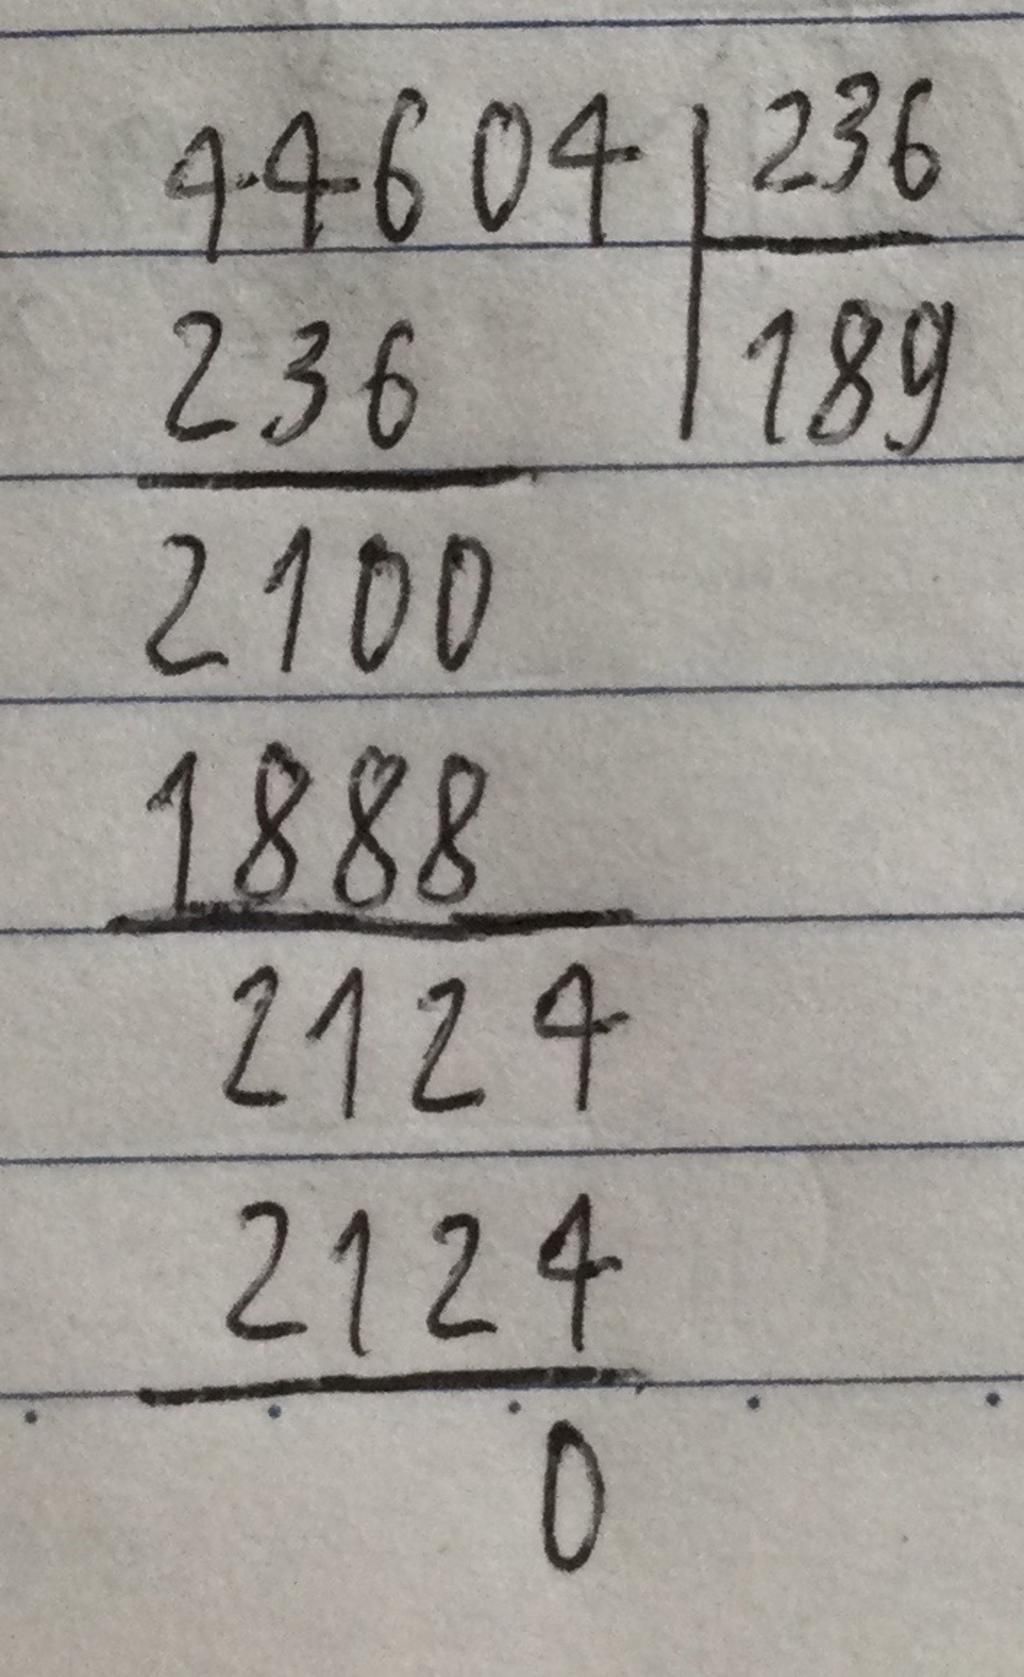 44604 236
236 189
2100
1888
2124
2124
0